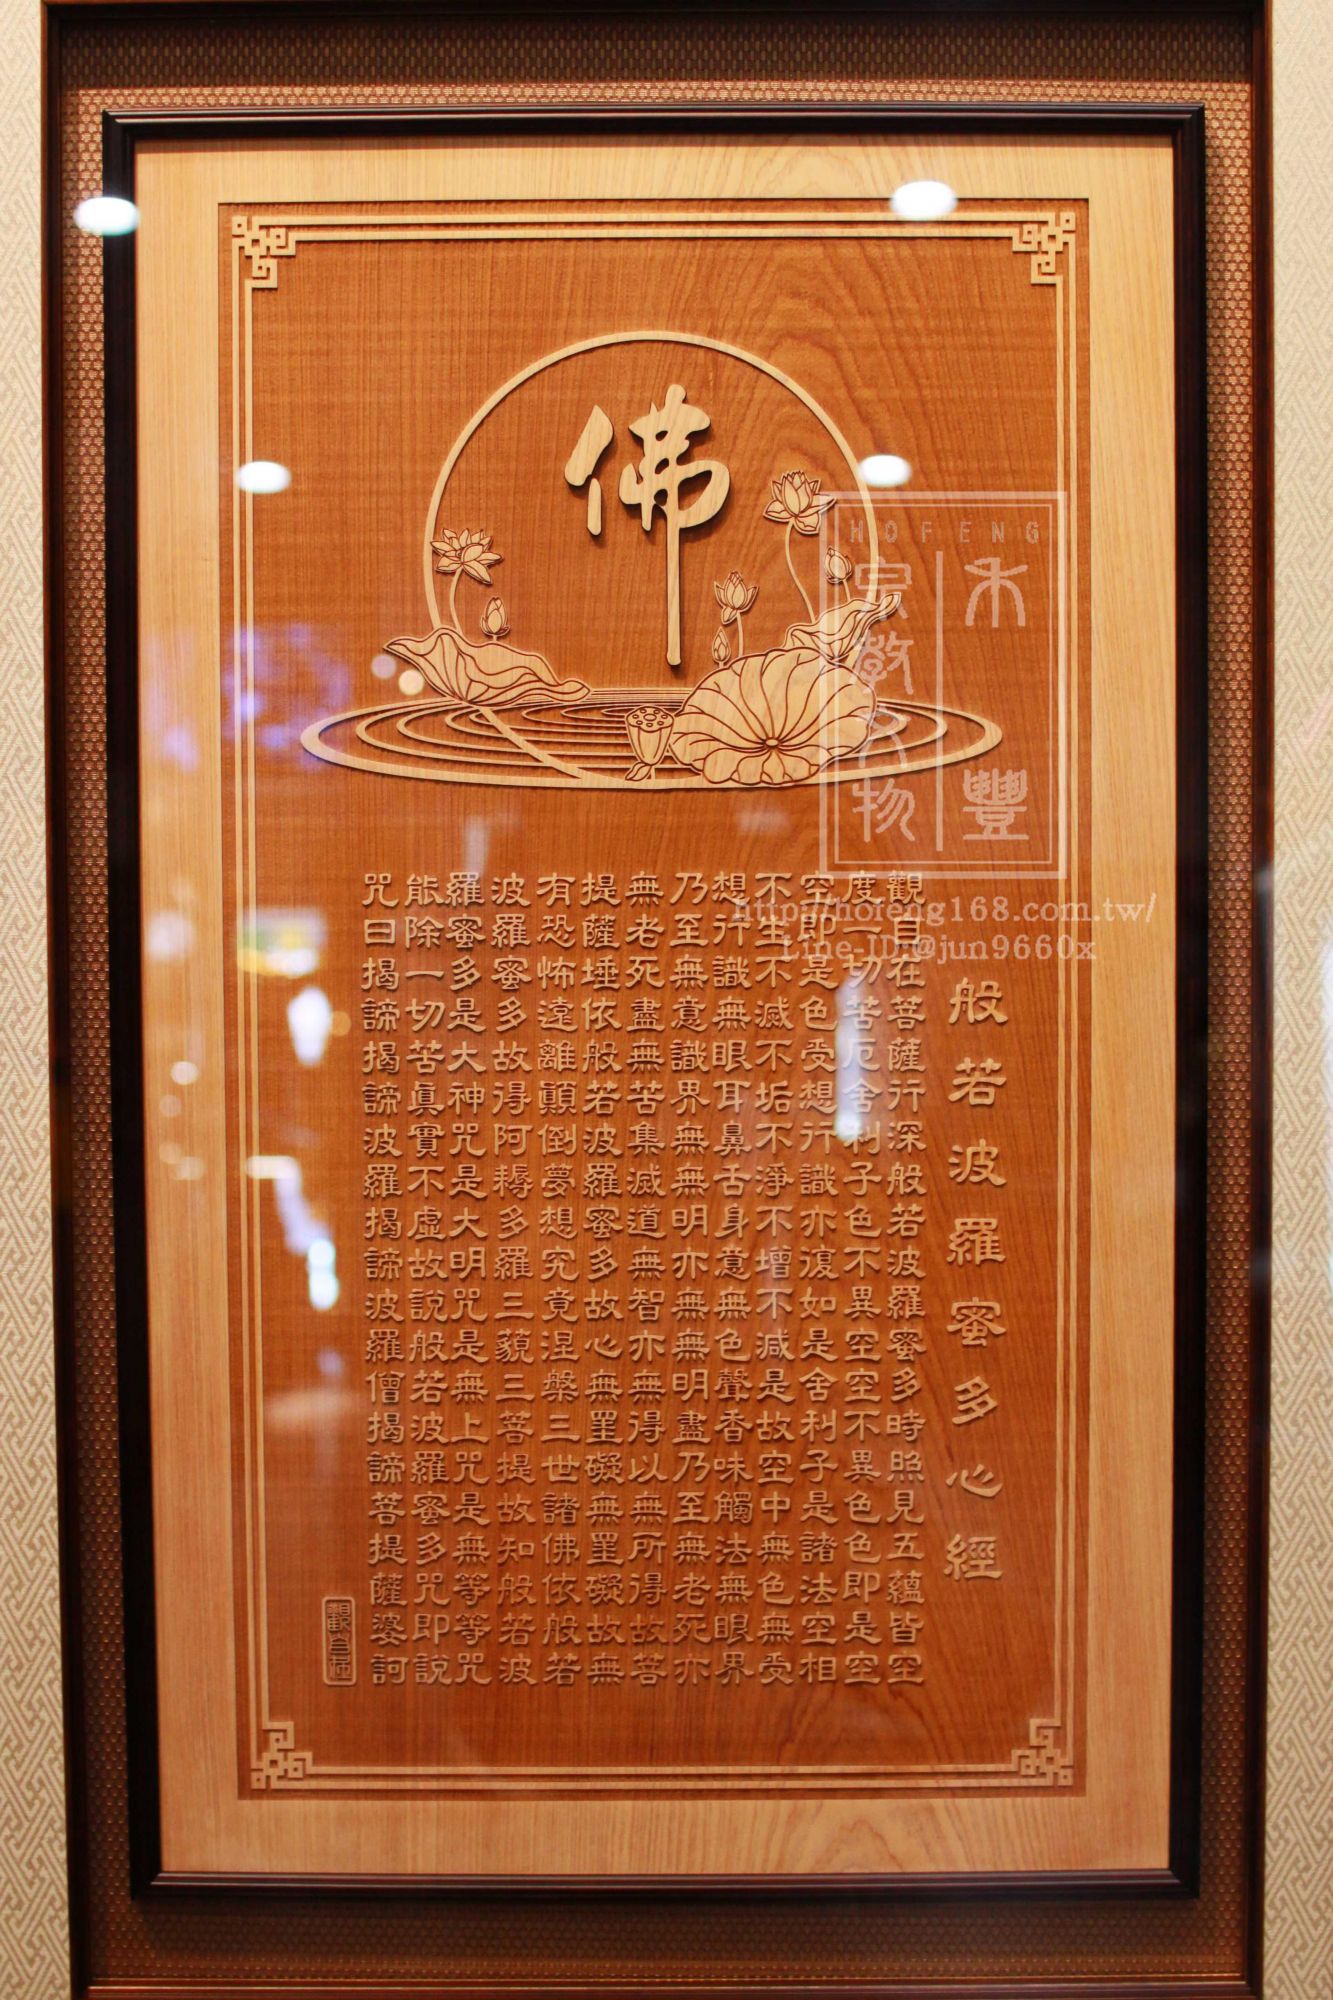 佛
HOFENG
禾豐
宗教文物
http://hofeng168.com.tw/
Line-ID:@jun9660x
般若波羅蜜多心經
觀自在菩薩行深般若波羅蜜多時照見五蘊皆空
度一切苦厄舍利子色不異空空不異色色即是空
空即是色受想行識亦復如是舍利子是諸法空相
不生不滅不垢不淨不增不減是故空中無色無受
想行識無眼耳鼻舌身意無色聲香味觸法無眼界
乃至無意識界無無明亦無無明盡乃至無老死亦
無老死盡無苦集滅道無智亦無得以無所得故菩
提薩埵依般若波羅蜜多故心無罣礙無罣礙故無
有恐怖遠離顛倒夢想究竟涅槃三世諸佛依般若
波羅蜜多故得阿耨多羅三藐三菩提故知般若波
羅蜜多是大神咒是大明咒是無上咒是無等等咒
能除一切苦眞實不虛故說般若波羅蜜多咒即說
咒曰揭諦揭諦波羅揭諦波羅僧揭諦菩提薩婆訶
觀自在